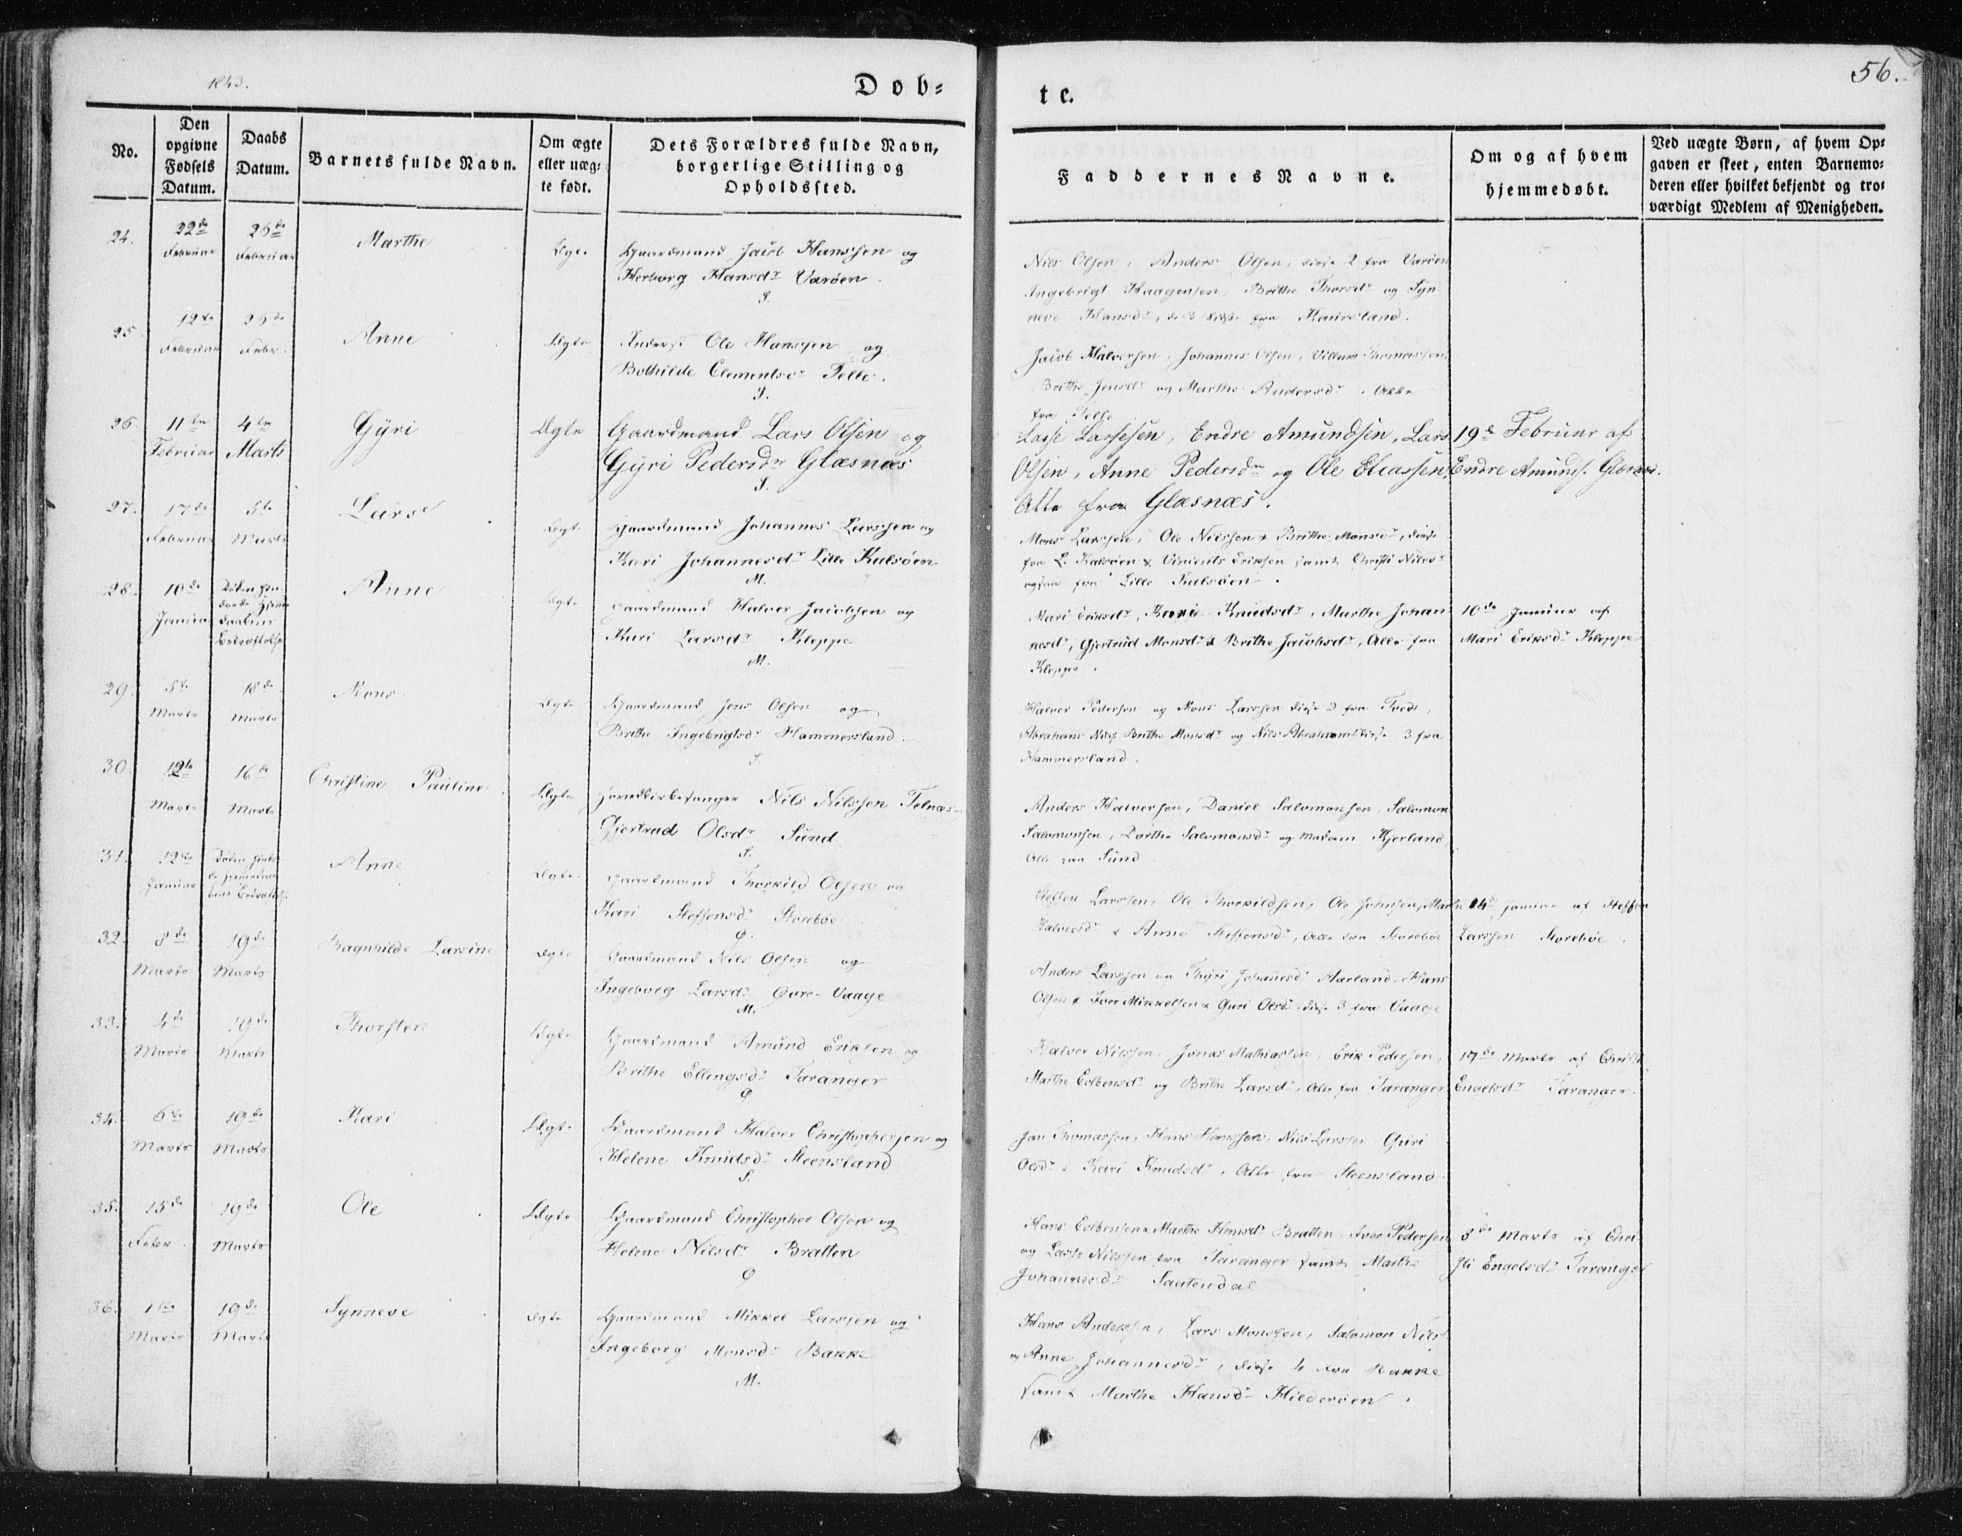 1843.
Døb-
te.
56.
No.
Den
opgivne
Fødsels
Datum.
Daabs
Datum.
Barnets fulde Navn.
Om ægte
eller uæg-
te født.
Dets Forældres fulde Navn,
borgerlige Stilling og
Opholdssted.
Faddernes Navne.
Om og af hvem
hjemmedøbt.
Ved uægte Børn, af hvem Op-
gaven er skeet, enten Barnemo-
deren eller hvilket bekjendt og tro-
værdigt Medlem af Menigheden.
24.
22de
Februar
26de
Februar
Marthe
Ægte
Gaardmand Jacob Hanssen og
Herborg Hansdr Værøen.
S.
Nils Olsen, Anders Olsen, disse 2 fra Værøen
Ingebrigt Haagensen, Brithe Thorsdr og Syn-
neve Hansdr, de 3 sidste fra
25.
12te
Februar
26de
Febr.
Anne
Ægte
Ole Hanssen og
Bothilde Clementsdr Telle.
S.
Jacob Halversen, Johannes Olsen, Villum Thomassen,
Brithe Jensdr og Marthe Andersdr. Alle
fra Telle
26.
11te
Februar
4te
Marts
Gyri
Ægte
Gaardmand Lars Olsen og
Gyri Pedersdr Glæsnæs
S.
Lasse Lassesen, Endre Amundsen, Lars
Olsen, Anne Pedersdr og Ole Eliassen,
Alle fra Glæsnæs.
19de Februar af
Endre Amunds. Glæsnæs.
27.
17de
Februar
5te
Marts
Lars
Ægte
Gaardmand Johannes Larssen og
Kari Johannesdr Lille Kalsøen
M.
Mons Larssen, Ole Nilssen & Brithe Monsdr, disse
fra L. Kalsøen & Erikssen samt Christi Nilsdr
ogsaa fra Lille Kalsøen.
28.
10de
Januar
Anne
Ægte
Gaardmand Halver Jacobsen og
Kari Larsdr Kleppe
M.
Mari Eriksdr, Kari Knudsdr, Marthe Johan
nesdr, Gjertrud Monsdr & Brithe Jacobsdr, Alle fra
Kleppe.
10de Januar af
Mari Eriksdr Kleppe
29.
5te
Marts
18de
Marts
Mons
Ægte
Gaardmand Jens Olsen og
Brithe Ingebrigtsdr Hammersland.
S.
Halver Pedersen og Mons Larssen disse 2 fra Tveit,
Abraham Nils. Brithe Monsdr og Nils Abrahamsen disse 3 fra
Hammersland.
30.
12te
Marts
16de
Marts
Christine Pauline
Ægte
Nils Nilssen Telnæs
Gjertrud Olsdr Sund
S.
Anders Halversen, Daniel Salomonsen, Salomon
Salomonsen, Dorthe Salomonsdr og Madam Kjerland
Alle fra Sund.
31.
12te
Januar
Anne
Ægte
Gaardmand Thorkild Olsen og
Kari Steffensdr Storebøe
Ø.
Steffen Larssen, Ole Thorkildsen, Ole Johnsen, Marthe
Halversdr & Anne Steffensdr, Alle fra Storebøe
14de Januar af Steffen
Larssen Storebøe.
32.
8de
Marts
19de
Marts
Ragnhilde Larsine
Ægte
Gaardmand Nils Olsen og
Ingeborg Larsdr Øvre-Vaage
M.
Anders Larssen og Thyri Johannesdr Aarland, Hans
Olsen & Iver Mikkelsen & Guri Olsdr disse 3 fra Vaage
33.
4de
Marts
19de
Marts
Thorsten
Ægte
Gaardmand Amund Eriksen og
Brithe Ellingsdr Taranger
Ø
Halver Nilssen, Jonas Mathiassen, Erik Pedersen,
Marthe Colbensdr og Brithe Larsdr, Alle fra Taranger
17de Marts af Christi
Engelsdr Taranger.
34.
6te
Marts
19de
Marts
Kari
Ægte
Gaardmand Halver Christophersen og
Helene Knudsdr Steensland
S.
Jan Thomassen, Hans Hanssen, Nils Larssen, Guri
Olsdr & Kari Knudsdr, Alle fra Steensland
35.
15de
Febr.
19de
Marts
Ole
Ægte
Gaardmand Christopher Olsen og
Helene Nilsdr Bratten
Ø
Hans Colbensen & Marthe Hansdr Bratten, Iver Pedersen
og Lasse Nilssen fra Taranger samt Marthe
Johannesdr Saatendal
3de Marts af Chri-
sti Engelsdr Taranger
36.
1ste
Marts
19de
Marts
Synneve
Ægte
Gaardmand Mikkel Larssen og
Ingeborg Monsdr Bakke
M.
Hans Anderssen, Lars Monssen, Salomon Nils.
og Anne Johannesdr, disse 4 fra Bakke
samt Marthe Hansdr Hilderøen.